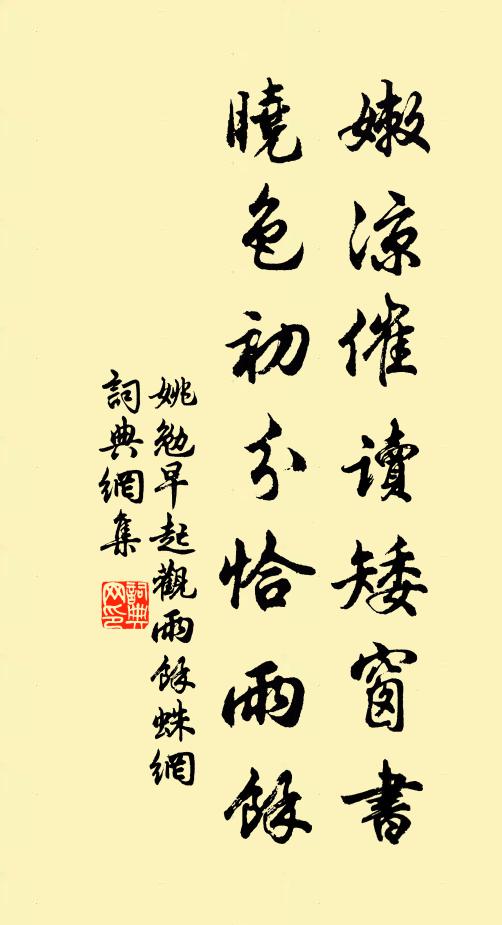 嫩涼催讀矮窗書
曉色初分恰雨餘
姚勉早起觀雨餘蛛網
詞典網集
詞典网印